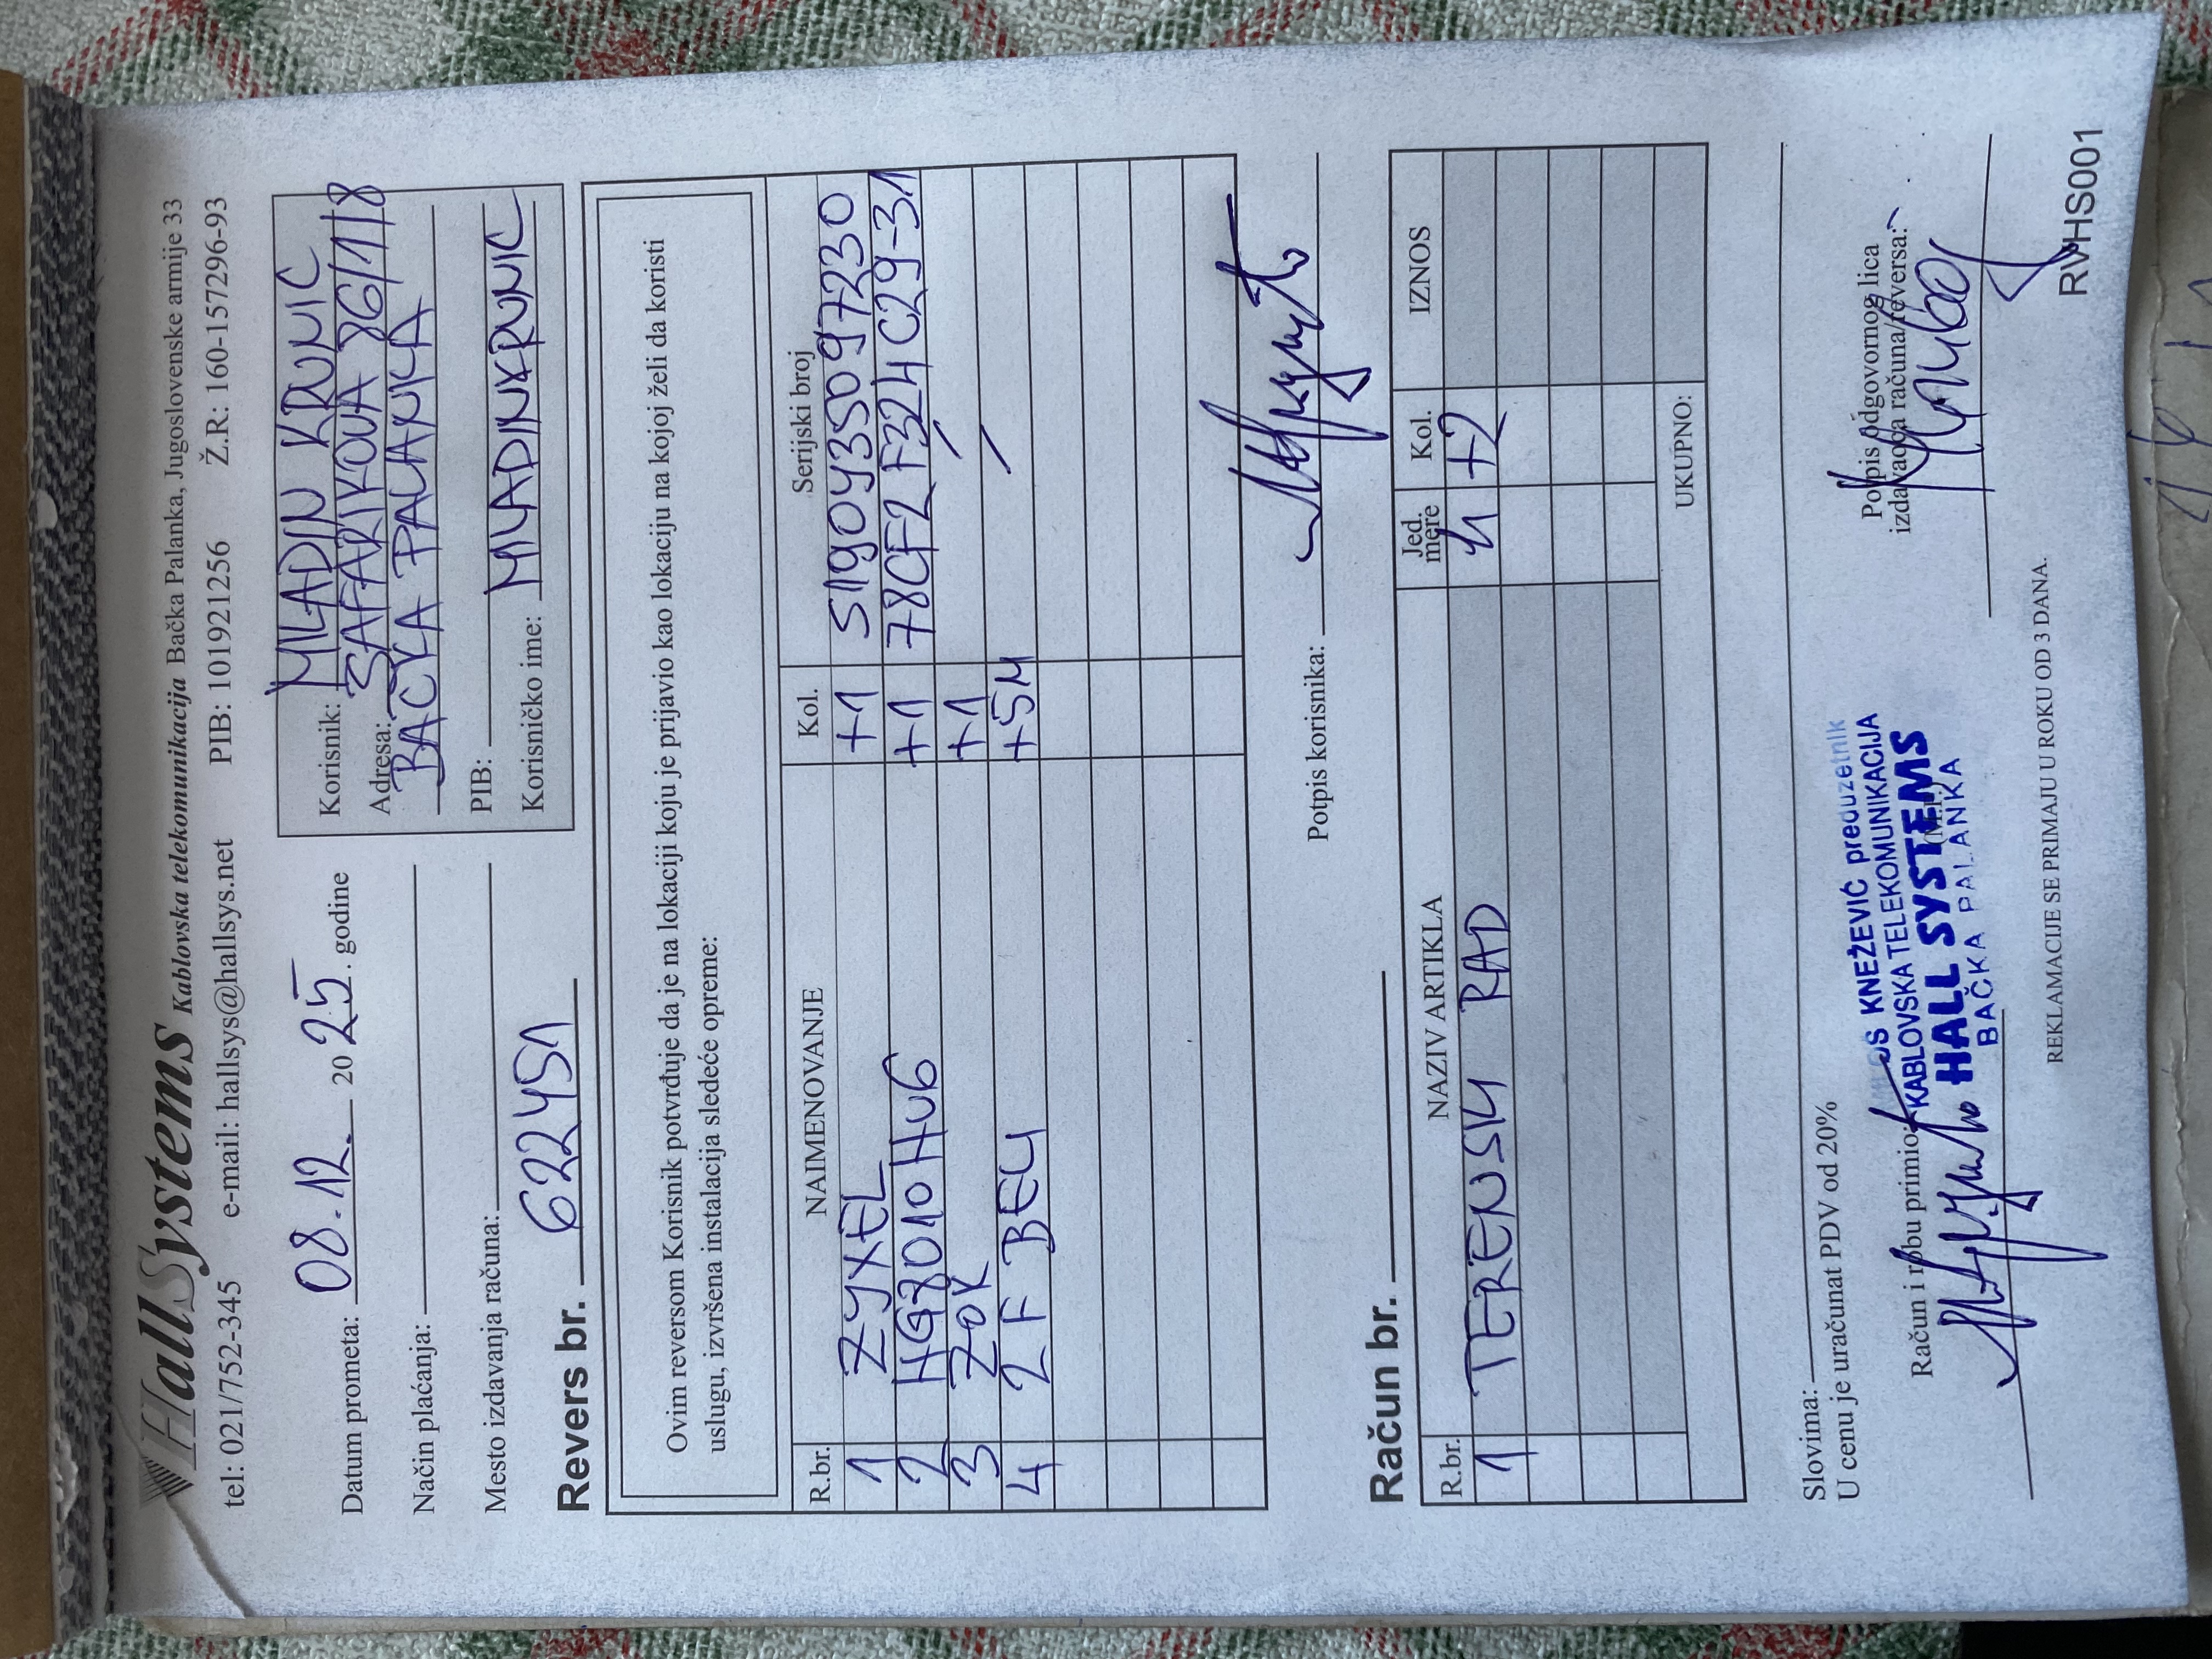 HallSystems Kablovska telekomunikacija Bačka Palanka, Jugoslovenske armije 33
tel: 021/752-345 e-mail: hallsys@hallsys.net PIB: 101921256 Ž.R: 160-157296-93
Datum prometa: 08.12. 2025. godine
Način plaćanja:
Mesto izdavanja računa:
Korisnik: MILADIN KRUNIĆ
Adresa: ŠAFARIKOVA 86/1/8
BAČKA PALANKA
PIB:
Korisničko ime: MILADINKRUNIC
Revers br. 622451
Ovim reversom Korisnik potvrđuje da je na lokaciji koju je prijavio kao lokaciju na kojoj želi da koristi
uslugu, izvršena instalacija sledeće opreme:
R.br. NAIMENOVANJE Kol. Serijski broj
1 ZYXEL +1 S190Y35097230
2 HG8010Hv6 +1 78CF2F324C29-31
3 ZOK +1 /
4 2F BELI +5M /
Potpis korisnika:
Račun br.
R.br. NAZIV ARTIKLA Jed. mere Kol. IZNOS
1 TERENSKI RAD h +2
UKUPNO:
Slovima:
U cenu je uračunat PDV od 20%
Račun i robu primio:
KNEŽEVIĆ preduzetnik
KABLOVSKA TELEKOMUNIKACIJA
HALL SYSTEMS
BAČKA PALANKA
Potpis odgovornog lica
izdavaoca računa/reversa:
REKLAMACIJE SE PRIMAJU U ROKU OD 3 DANA.
RVHS001